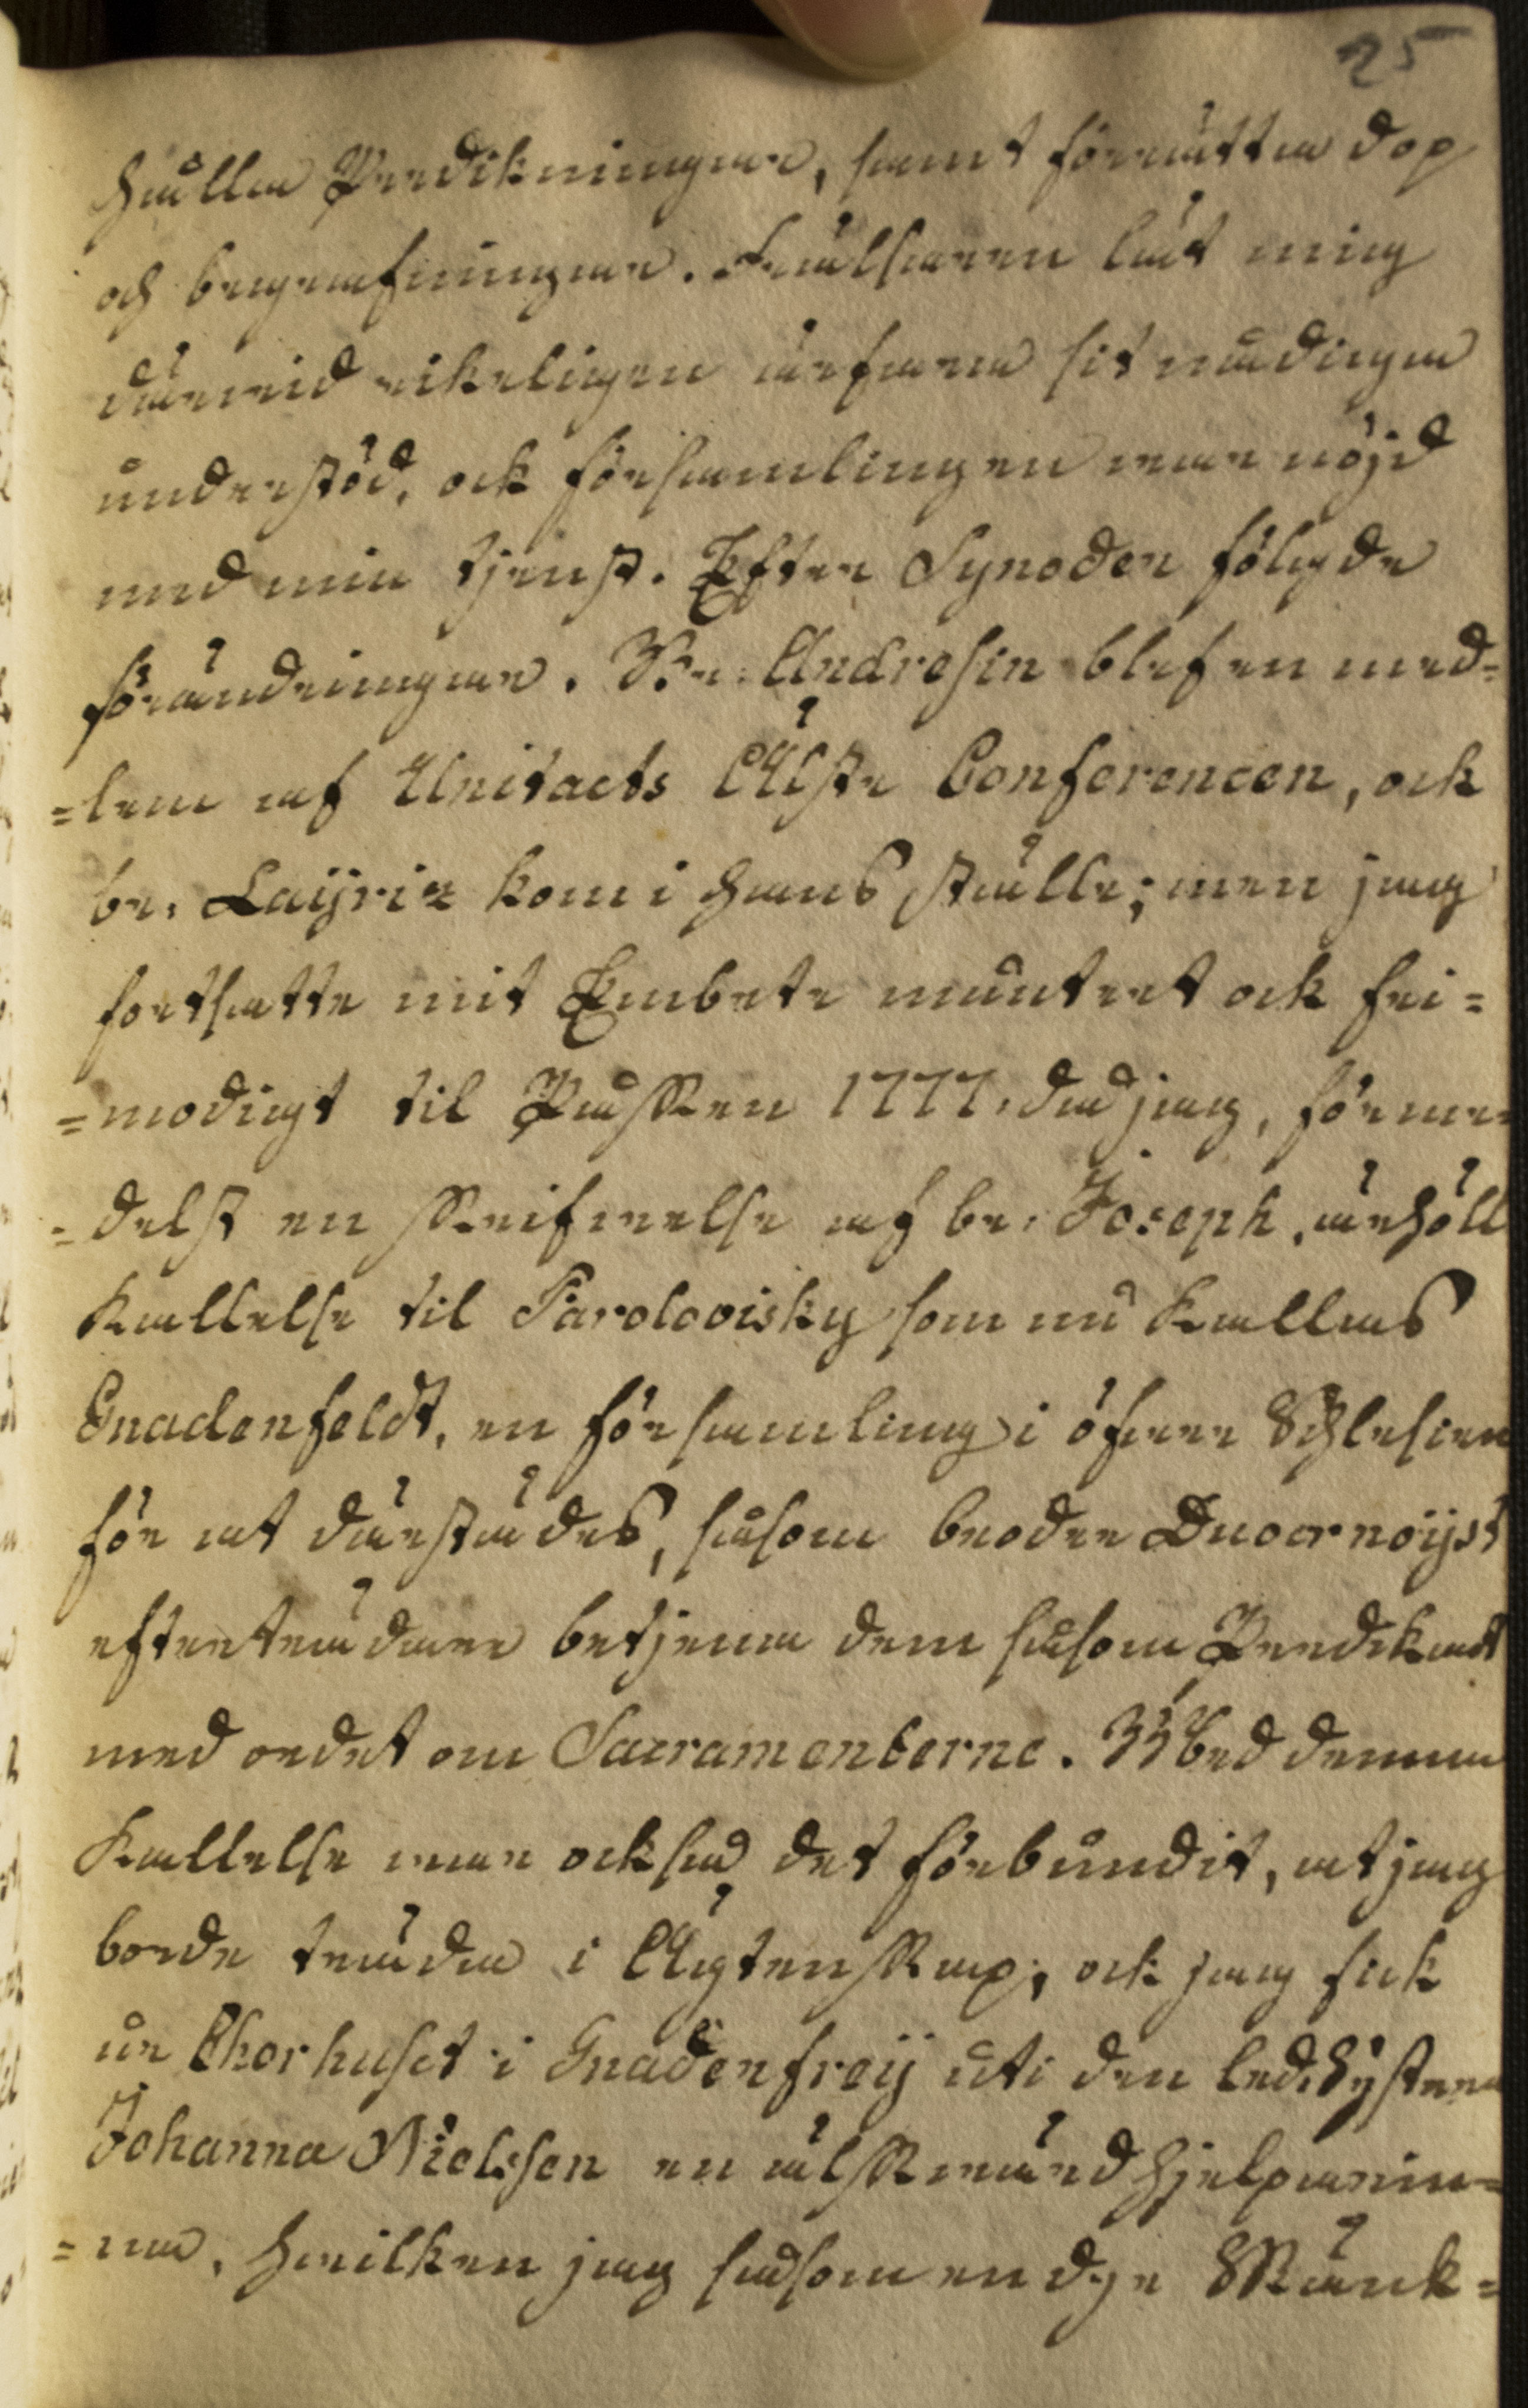 25
hålla Predikningar, samt förrätta dop
och begrafningar. Frälsaren lät mig
därvid rikeligen ärfara sit nådiga
understöd, ock församlingen war nöjd
med min tjenst. Efter Synoden följde
förändringar. Br: Andresin blef en med=
=lem af Unitaets Älste Conferencen, ock
br. Laÿriz kom i hans ställe; men jag
fortsatte mit Embete muntert ock fri=
=modigt til Påsken 1777, då jag, förme=
=delst en skrifwelse af br. Joseph, ärhöll
Kallelse til Pawlowisky som nu kallas
Gnadenfeldt, en församling i öfwer Schlesien
för at därstädes, såsom broder Duvernoÿs
efterträdare betjena dem såsom Predikant
med ordet om Sacramenterne. Wed denna
Kallelse war också det förbundit, at jag
borde träda i Ägtenskap; ock jag fick
ur Chorhuset i Gnadenfreÿ uti den led: Syster
Johanna Nielssen en älskwärd hjelparin=
=na, hwilken jag såsom en dyr Skänk=